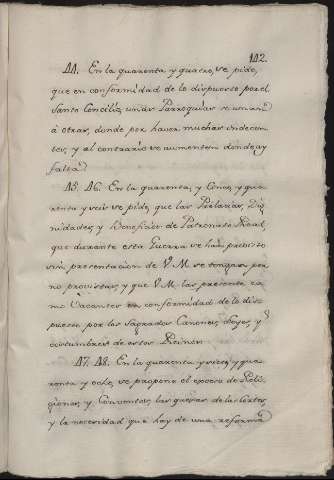 112.
44. En la quarenta y quatro, se pide,
que en conformidad de lo dispuesto por el
Santo Concilio, unas Parroquias se unan
à otras, donde por haver muchas indecen
tes, y al contrario se aumenten donde ay
falta
45. 46. En la quarenta, y Cinco, y qua
renta y seis se pide, que las Prelacias, Dig
nidades, y Beneficios de Patronato Real,
que durante esta Guerra se han provisto
sin presentacion de V.M. se tengan por
no provistas, y que V.M. las presente co
mo Vacantes en conformidad de lo dis
puesto por los Sagrados Canones, Leyes, y
costumbres de estos Reinos.
47. 48. En la quarenta y siete, y qua
renta y ocho, se propone el exceso de Reli
giones, y Conventos, las quexas de las Cortes
y la necesidad que hay de una reforma